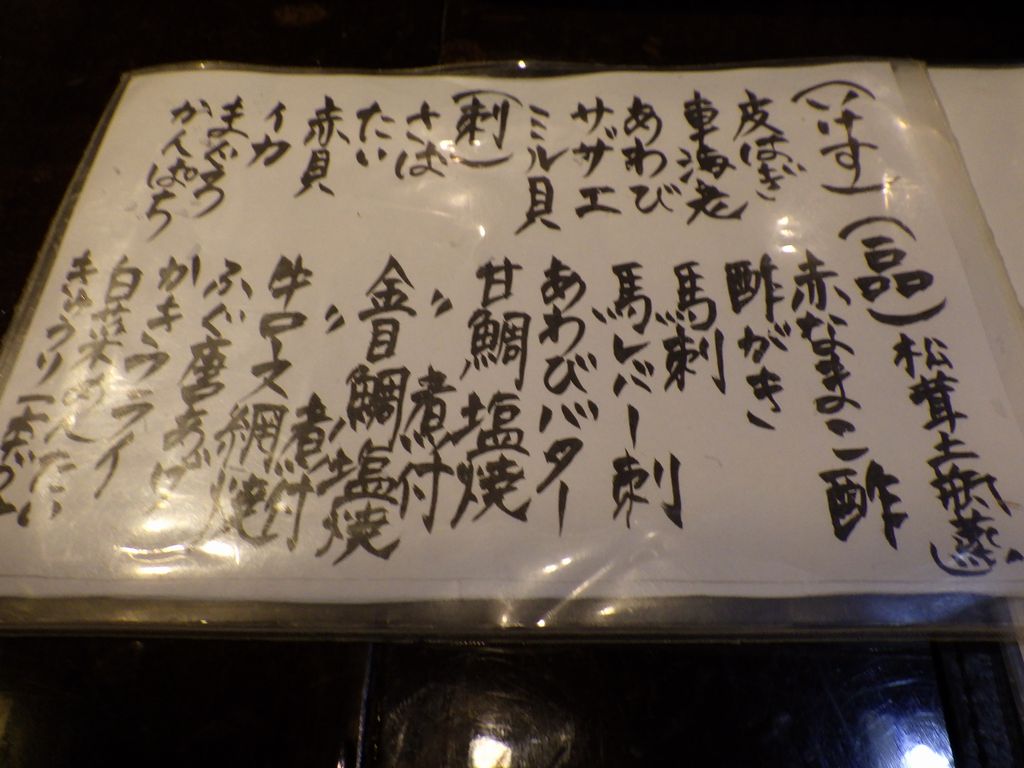 (いけす)
皮はぎ
車海老
あわび
サザエ
ミル貝
(刺)
さば
たい
赤貝
イカ
まぐろ
かんぱち
(一品)
松茸土瓶蒸し
赤なまこ酢
酢がき
馬刺
馬レバー刺
あわびバター
甘鯛塩焼
〃 煮付
金目鯛塩焼
〃 煮付
牛ロース網焼
ふぐ唐あげ
かきフライ
白菜めんたい
きゅうり一本づけ